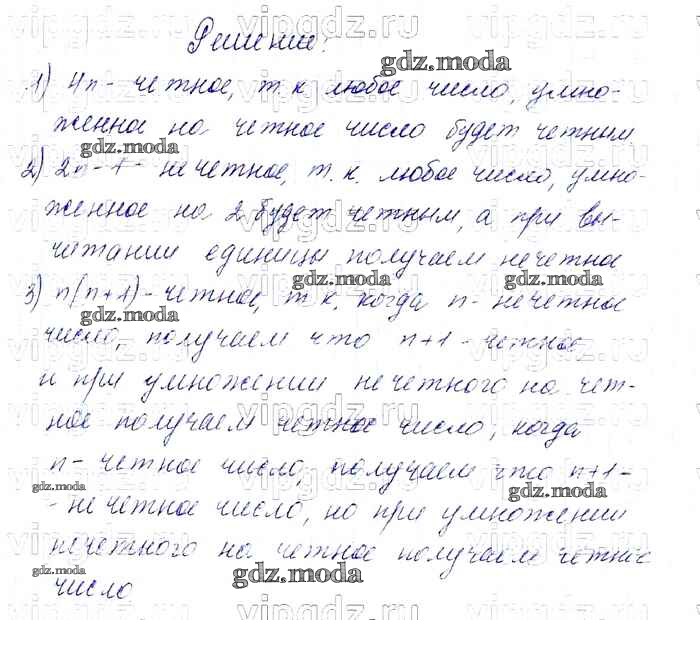 Решение:
1) 4n - четное, т.к любое число, умно-
женное на четное число будет четным
2) 2n - 1 - нечетное, т.к. любое число, умно-
женное на 2 будет четным, а при вы-
читании единицы получаем нечетное
3) n(n+1) - четное, т.к. когда n - нечетное
число, получаем что n+1 - четное
и при умножении нечетного на чет-
ное получаем четное число, когда
n - четное число, получаем что n+1 -
- нечетное число, но при умножении
нечетного на четное получаем четное
число
vipgdz.ru
gdz.moda
gdz.moda
gdz.moda
gdz.moda
gdz.moda
gdz.moda
gdz.moda
gdz.moda